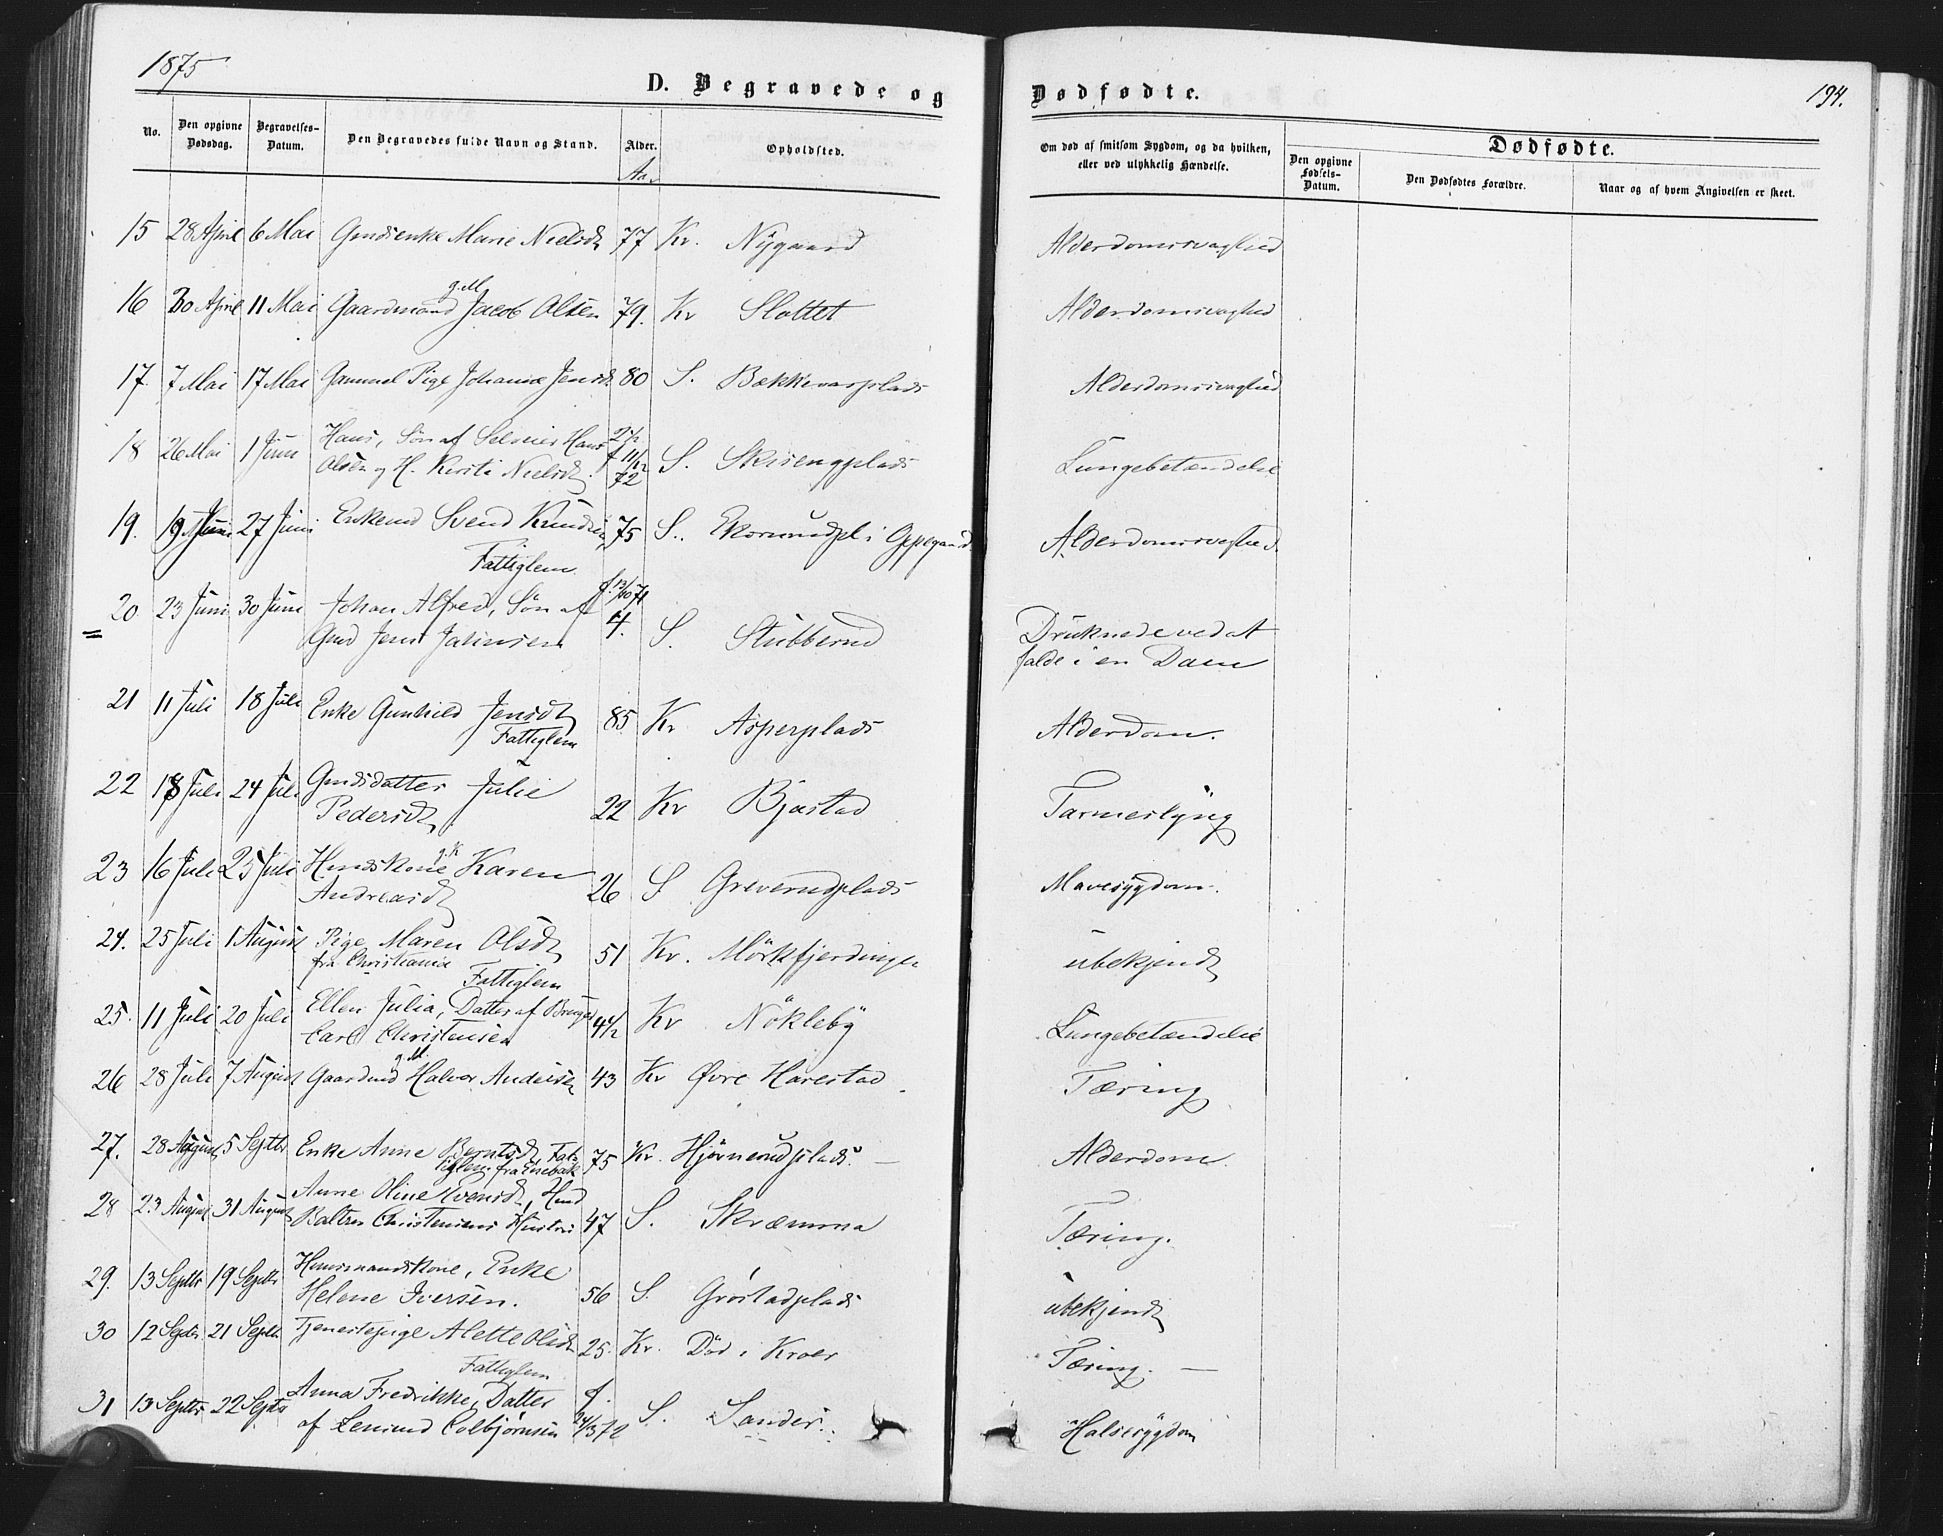 1875
D. Begravede og Dødfødte.
194.
No.
Den opgivne Dødsdag.
Begravelses-Datum.
Den Begravedes fulde Navn og Stand.
Alder.
Aar
Opholdsted.
Om død af smitsom Sygdom, og da hvilken, eller ved ulykkelig Hændelse.
Dødfødte.
Den opgivne Fødsels-Datum.
Den Dødfødtes Forældre.
Naar og af hvem Angivelsen er skeet.
15 28 April 6 Mai Gmdsenke Marie Nielsdt 77 Kr. Nygaard Alderdomssvaghed
16 30 April 11 Mai Gaardmand g.M. Jacob Olsen 79. Kr Slottet Alderdomssvaghed
17. 7 Mai 17 Mai Gammel Pige Johanne Jensdt 80 S. Bækkevarplads Alderdomssvaghed
18 26 Mai 1 Juni Hans, Søn af Selveier Hans
Olsen og H. Kirsti Nielsdt 2½ f 11/12 72 S. Skisengplads Lungebetændelse
19. 19 Juni 27 Juni Enkemd Svend Knudsen 75 S. i Oppegaard Alderdomssvaghed
Fattiglem
20 23 Juni 30 Juni Johan Alfred, Søn af f. 71
Gmd Jens 4. S. Stubberud Druknede ved at
falde i en Dam
21 11 Juli 18 Juli Enke Gunhild Jensdt 85 Kr Asperplads Alderdom.
Fattiglem
22 18 Juli 24 Juli Gmdsdatter Julie
Pedersdt 22 Kr Bjastad
23 16 Juli 25 Juli Hmdskone g.K Karen
Andreasdt 26 S Greverudplads Mavesygdom.
24. 25 Juli 1 August Pige Maren Olsdt 51 Kr. Mörkfjerdingen ubekjendt
fra Christiania Fattiglem
25. 11 Juli 20 Juli Ellen Julia, Datter af
Carl Christensen 4½ Kr Nökleby Lungebetændelse
26 28 Juli 7 August Gaardmd g.M. Halvor Andersen 43 Kr Øvre Harestad Tæring
27. 28 August 5 Septbr Enke Anne Berntsdt Fat-
tiglem fra 75 Kr. Hjörnerudplads. Alderdom.
28 23 August 31 August Anne Oline Evensdt, Hmd
Christensens Hustru 47 S. Skræmma Tæring.
29. 13 Septbr 19 Septbr Husmandskone, Enke
Helene Iversen. 56 S. Gröstadplads ubekjendt
30 12 Septbr 21 Septbr Tjenestepige Alette Olsdt 25. Kr. Död i Kroer Tæring.
Fattiglem
31 13 Septbr 22 Septbr Anna Fredrikke, Datter f.
af Colbjørnsen 24/3 72 S. Sander. Halssygdom